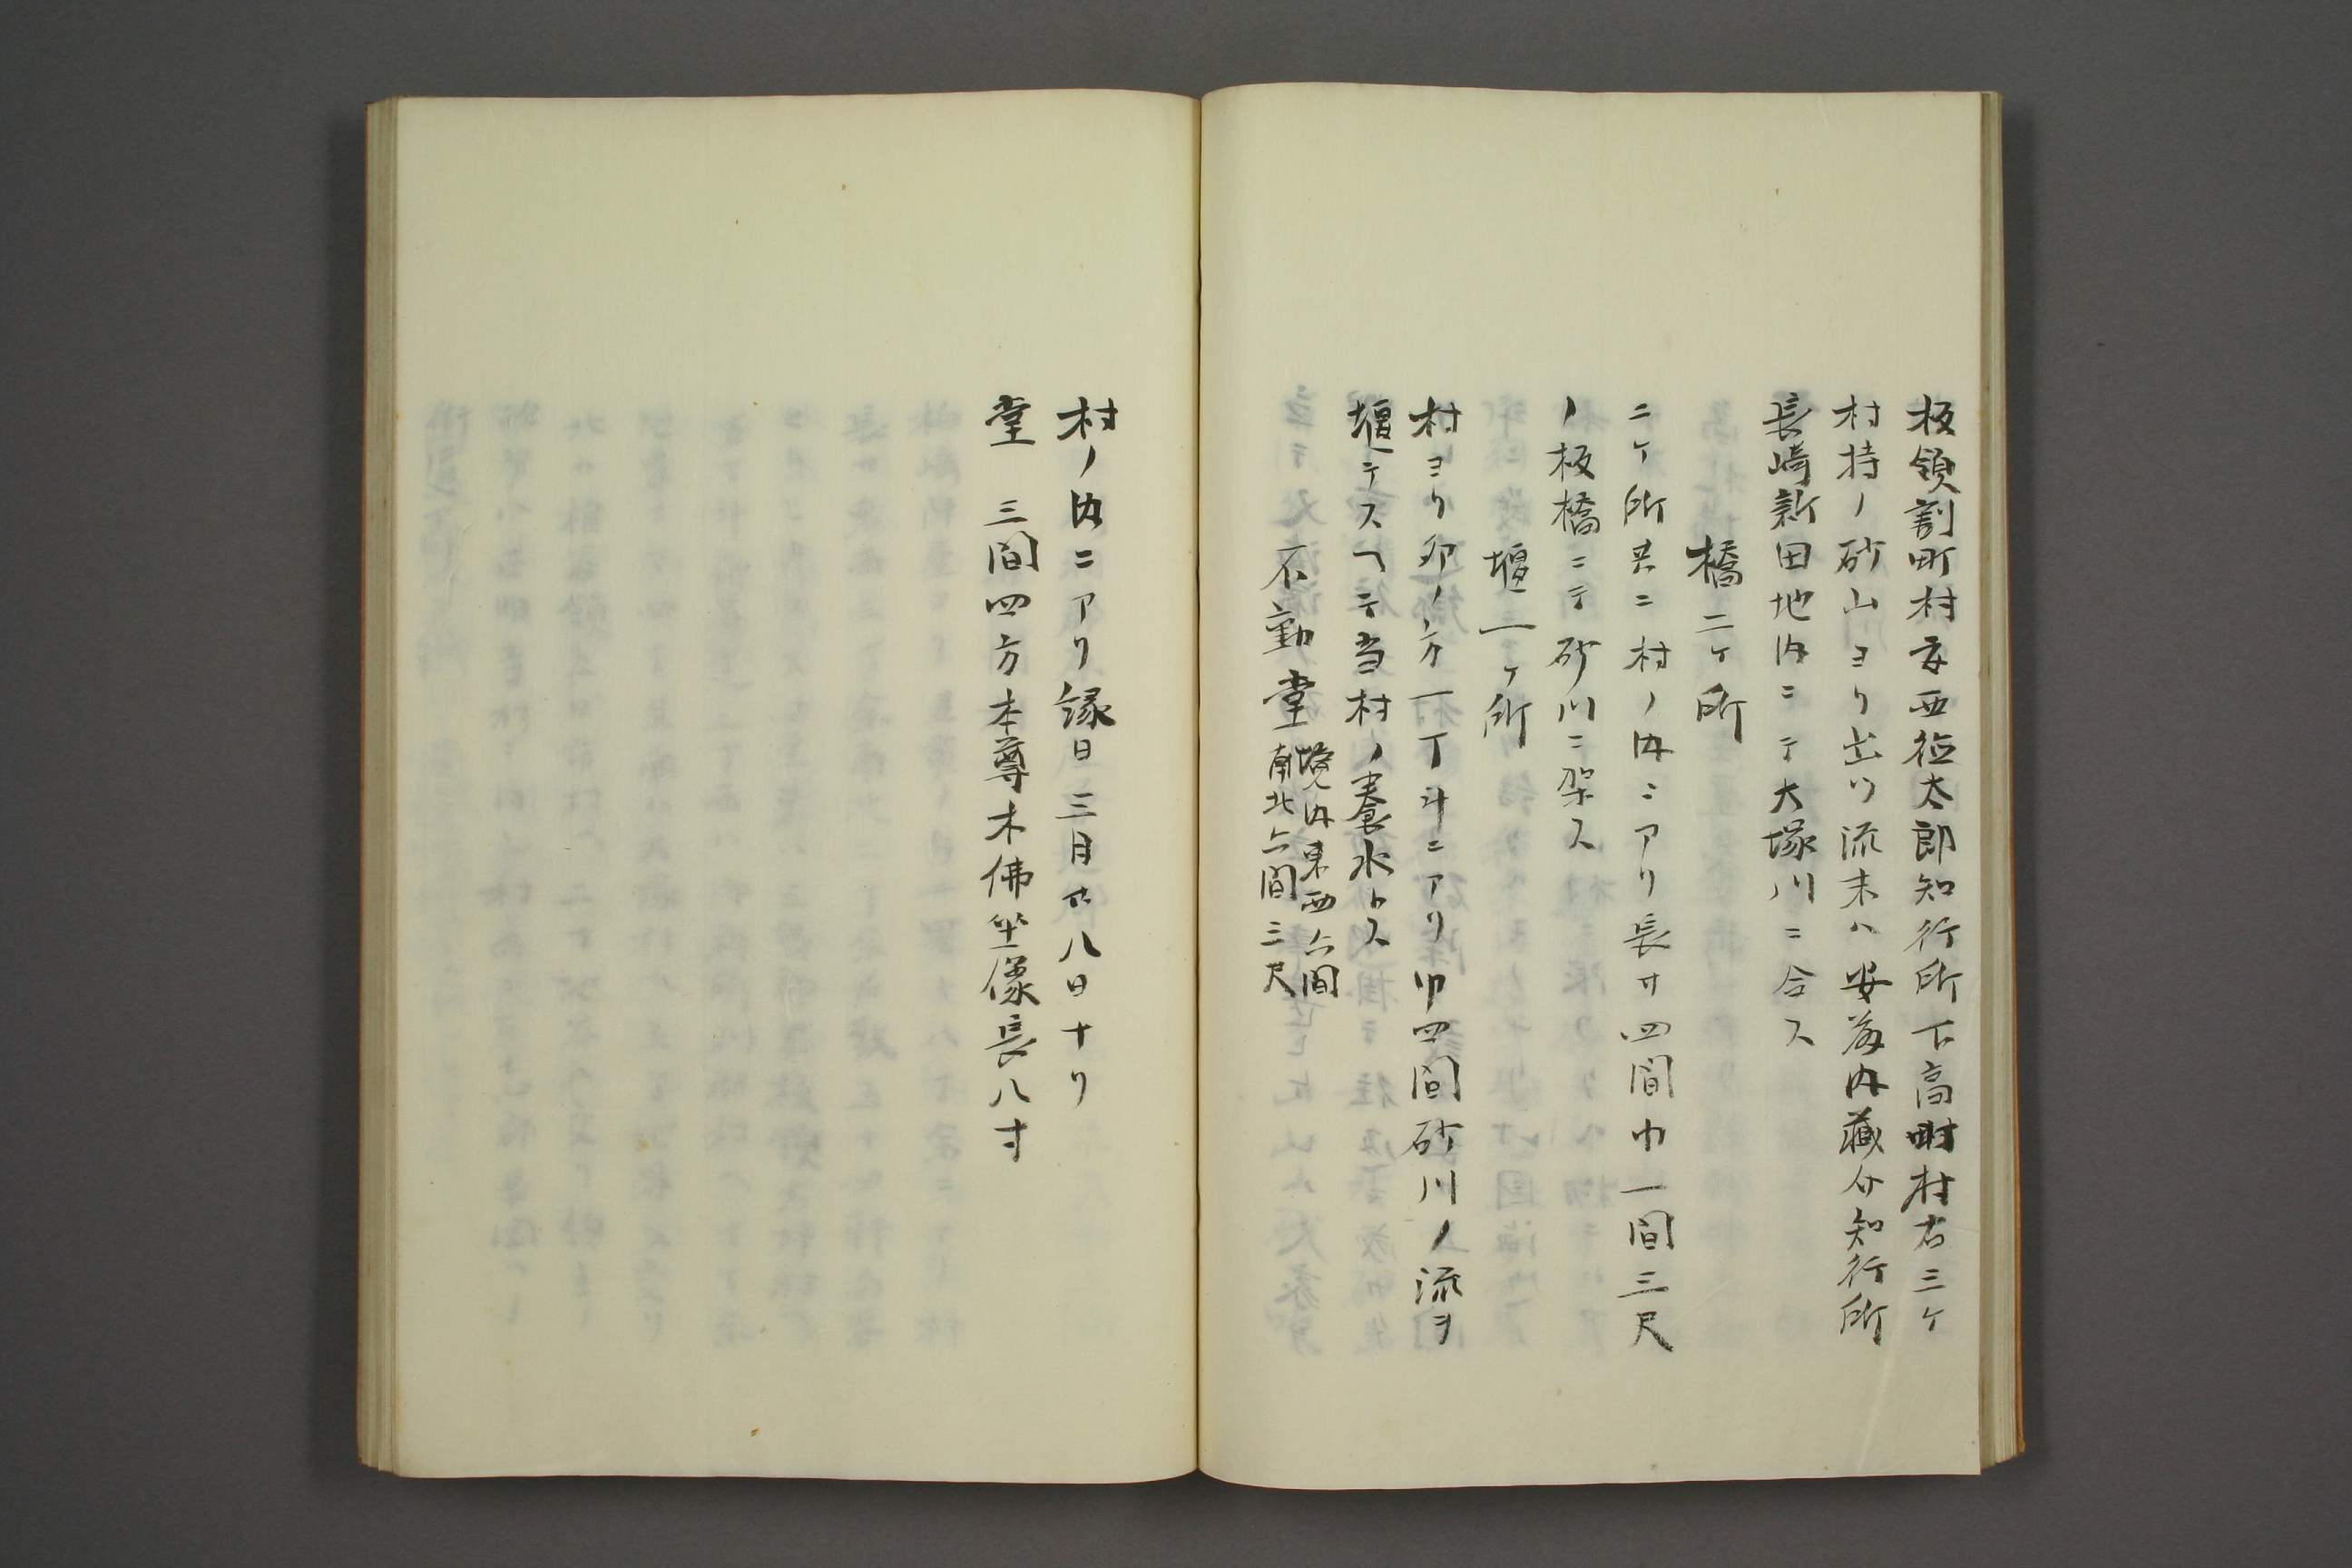 板領割町村安西徳太郎知行所下高町村右三ケ
村持ノ砂山ヨリ出ツ流末ハ安藤内蔵介知行所
長崎新田地内ニテ大塚川ニ合ス
橋二ケ所
二ケ所共ニ村ノ内ニアリ長サ四間巾一間三尺
ノ板橋ニテ砂川ニ架ス
堰一ケ所
村ヨリ卯ノ方一丁斗ニアリ巾四間砂川ノ流ヲ
堰テスヘテ当村ノ養水トス
不動堂 境内東西六間
南北六間三尺
村ノ内ニアリ縁日三月廿八日ナリ
堂 三間四方本尊木佛坐像長八寸